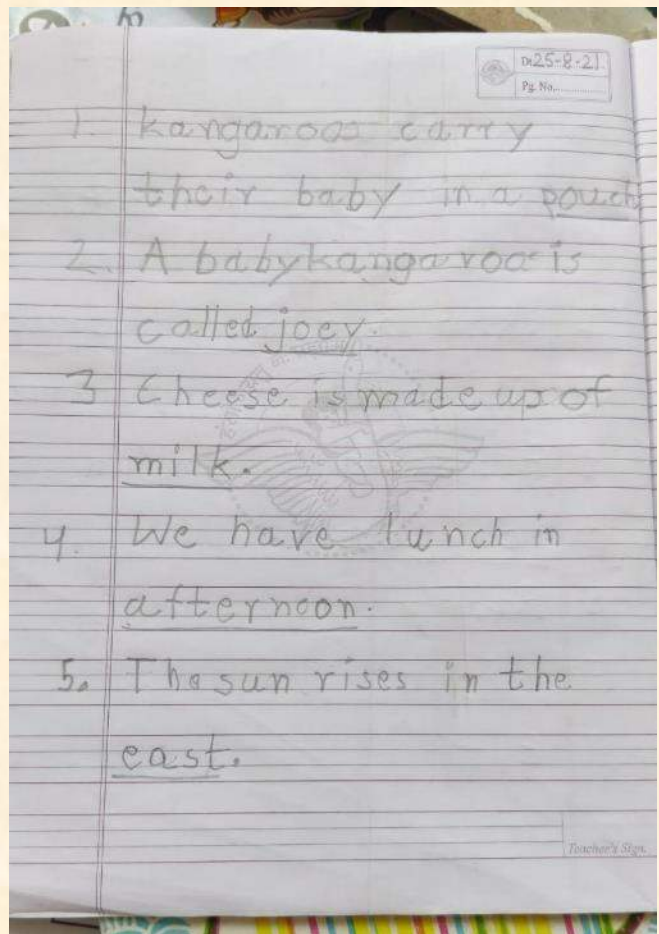 Dt 25-8-21
Pg. No.............
1. kangaroos carry
their baby in a pouch
2. A baby kangaroo is
called joey.
3 Cheese is made up of
milk.
4. We have lunch in
afternoon.
5. The sun rises in the
east.
Teacher's Sign.